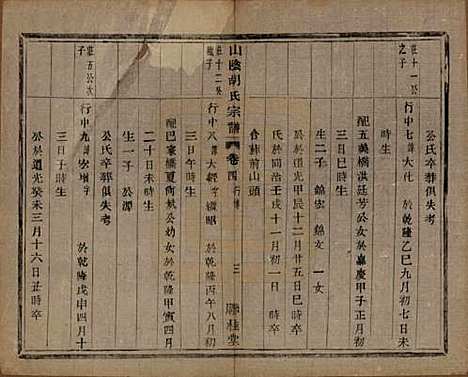 公氏卒葬俱失考
莊十一公之子
行中七諱大仕　於乾隆乙巳九月初七日未時生
配五美橋洪廷芳公女於嘉慶甲子正月初三日巳時生
生二子　錦宏　錦文　一女
公於道光甲辰十二月廿五日巳時卒
氏於同治壬戌十一月初一日時卒
合葬前山頭
山陰胡氏宗譜　卷四行傳　三　聯桂堂
莊十二公子
行中八諱大經字　於乾隆丙午八月初三日午時生
配巴家橋夏尚賢公幼女於乾隆甲寅四月二十日未時生
生一子　公潭
莊五公次子
行中九諱　字　於乾隆戊申四月十三日子時生
公於道光癸未三月十六日丑時卒